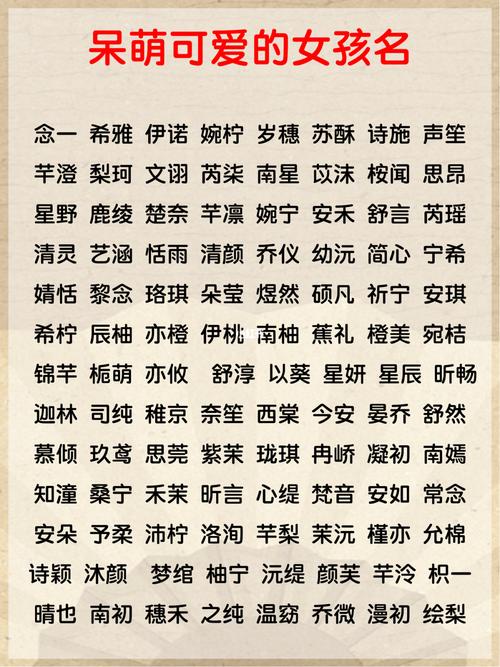 呆萌可爱的女孩名
念一 希雅 伊诺 婉柠 岁穗 苏酥 诗施 声笙
芊澄 梨珂 文诩 芮柒 南星 苡沫 桉闻 思昂
星野 鹿绫 楚奈 芊凛 婉宁 安禾 舒言 芮瑶
清灵 艺涵 恬雨 清颜 乔仪 幼沅 简心 宁希
婧恬 黎念 珞琪 朵莹 煜然 硕凡 祈宁 安琪
希柠 辰柚 亦橙 伊桃 南柚 蕉礼 橙美 宛桔
锦芊 栀萌 亦攸 舒淳 以葵 星妍 星辰 昕畅
迦林 司纯 稚京 奈笙 西棠 今安 晏乔 舒然
慕倾 玖鸢 思莞 紫茉 珑琪 冉峤 凝初 南嫣
知潼 桑宁 禾茉 昕言 心缇 梵音 安如 常念
安朵 予柔 沛柠 洛洵 芊梨 茉沅 槿亦 允棉
诗颖 沐颜 梦绾 柚宁 沅缇 颜芙 芊泠 枳一
晴也 南初 穗禾 之纯 温窈 乔微 漫初 绘梨